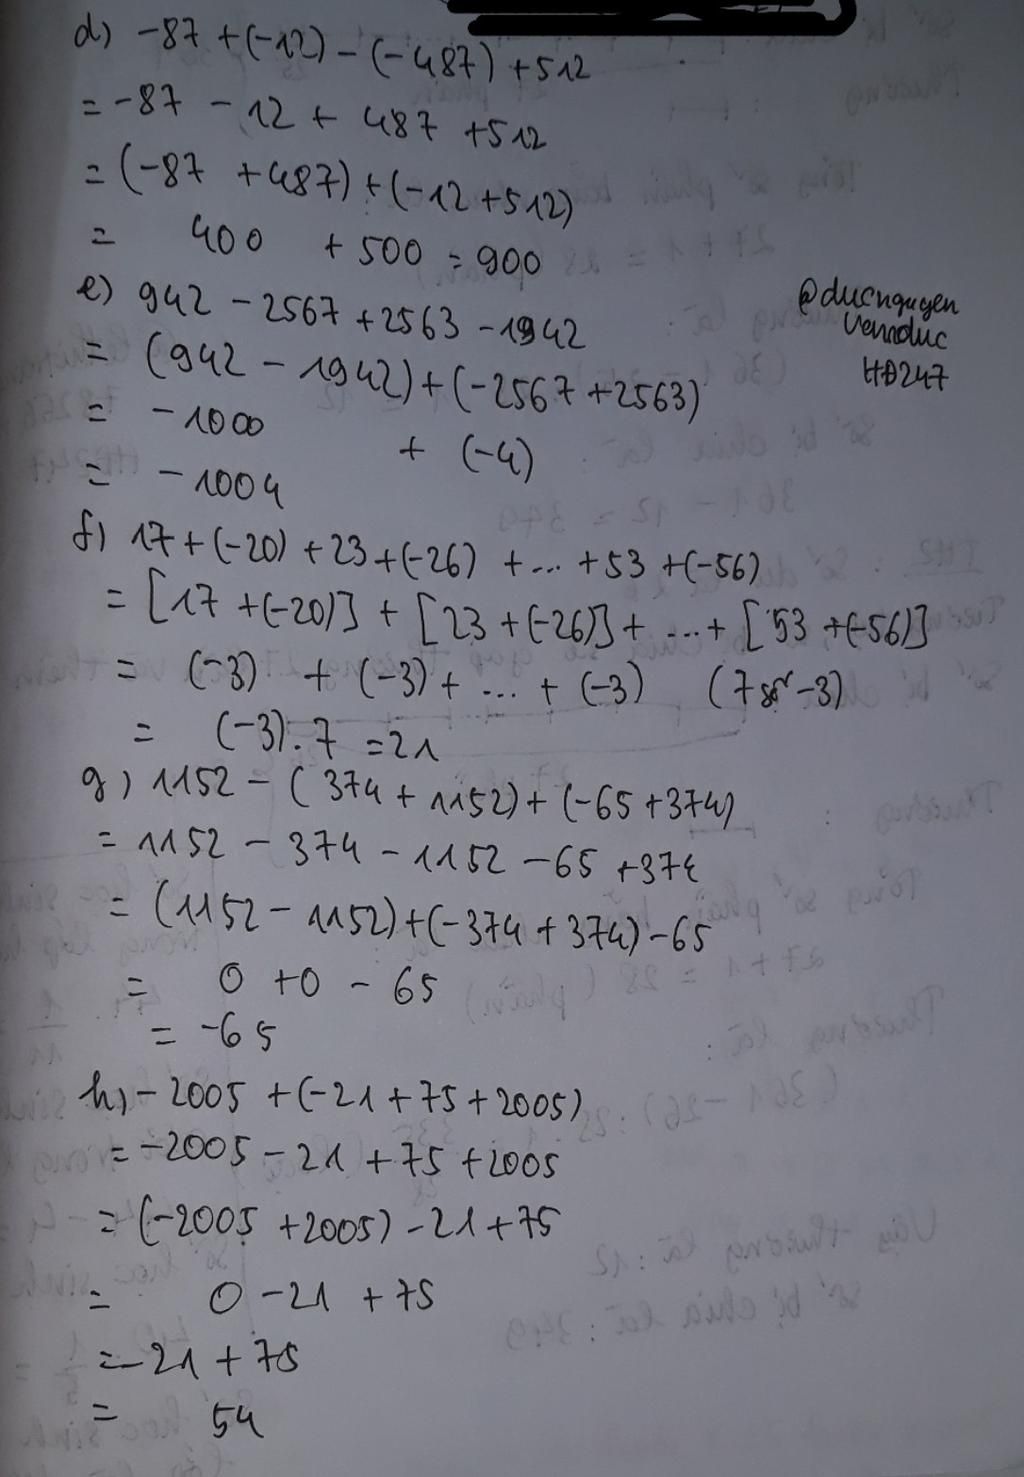 d) -87 + (-12) - (-487) + 512
= -87 - 12 + 487 + 512
= (-87 + 487) + (-12 + 512)
= 400 + 500 = 900
e) 942 - 2567 + 2563 - 1942
= (942 - 1942) + (-2567 + 2563)
= -1000 + (-4)
= -1004
@ducnguyen
venroduc
HĐ247
f) 17 + (-20) + 23 + (-26) + ... + 53 + (-56)
= [17 + (-20)] + [23 + (-26)] + ... + [53 + (-56)]
= (-3) + (-3) + ... + (-3) (7 số -3)
= (-3). 7 = 21
g) 1152 - (374 + 1152) + (-65 + 374)
= 1152 - 374 - 1152 - 65 + 374
= (1152 - 1152) + (-374 + 374) - 65
= 0 + 0 - 65
= -65
h) - 2005 + (-21 + 75 + 2005)
= -2005 - 21 + 75 + 2005
= (-2005 + 2005) - 21 + 75
= 0 - 21 + 75
= -21 + 75
= 54